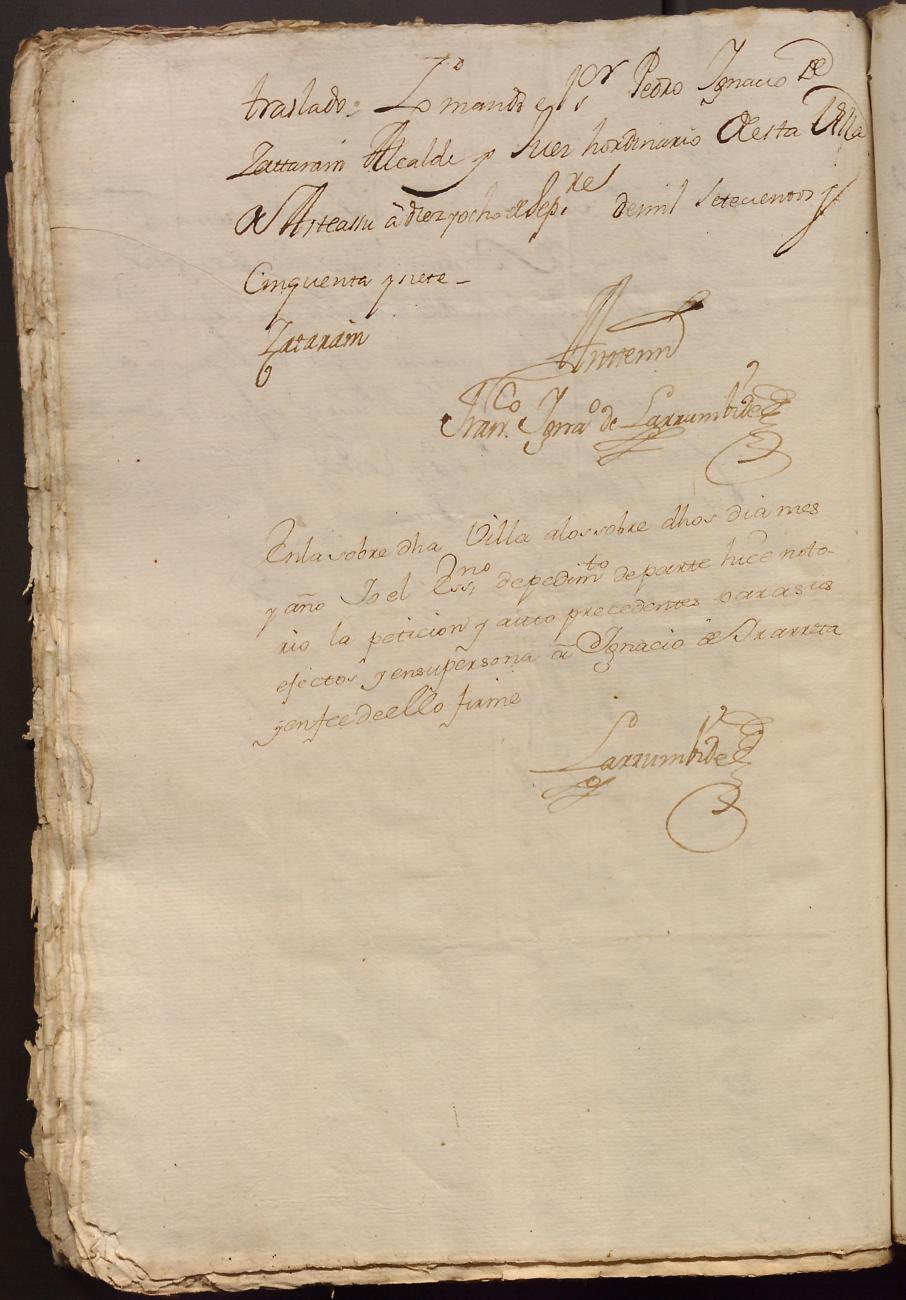 traslado: Lo mando el s.or Pedro Ignacio de
Zattarain Alcalde y Juez hordinario desta Villa
de Asteassu â diez y ocho de Sep.re de mil setecientos y
Cinquenta y siete -
Zatarain
Antemi
Fran.co Igna.o de Larrumbide
Enla sobre dha Villa alos sobre dhos dia mes
y año Yo el Ess.no de pedim.to de parte hice noto-
rio la peticion y auto precedentes para sus
efectos y ensupersona â Ignacio de Irarreta
yenfee deello firme
Larrumbide